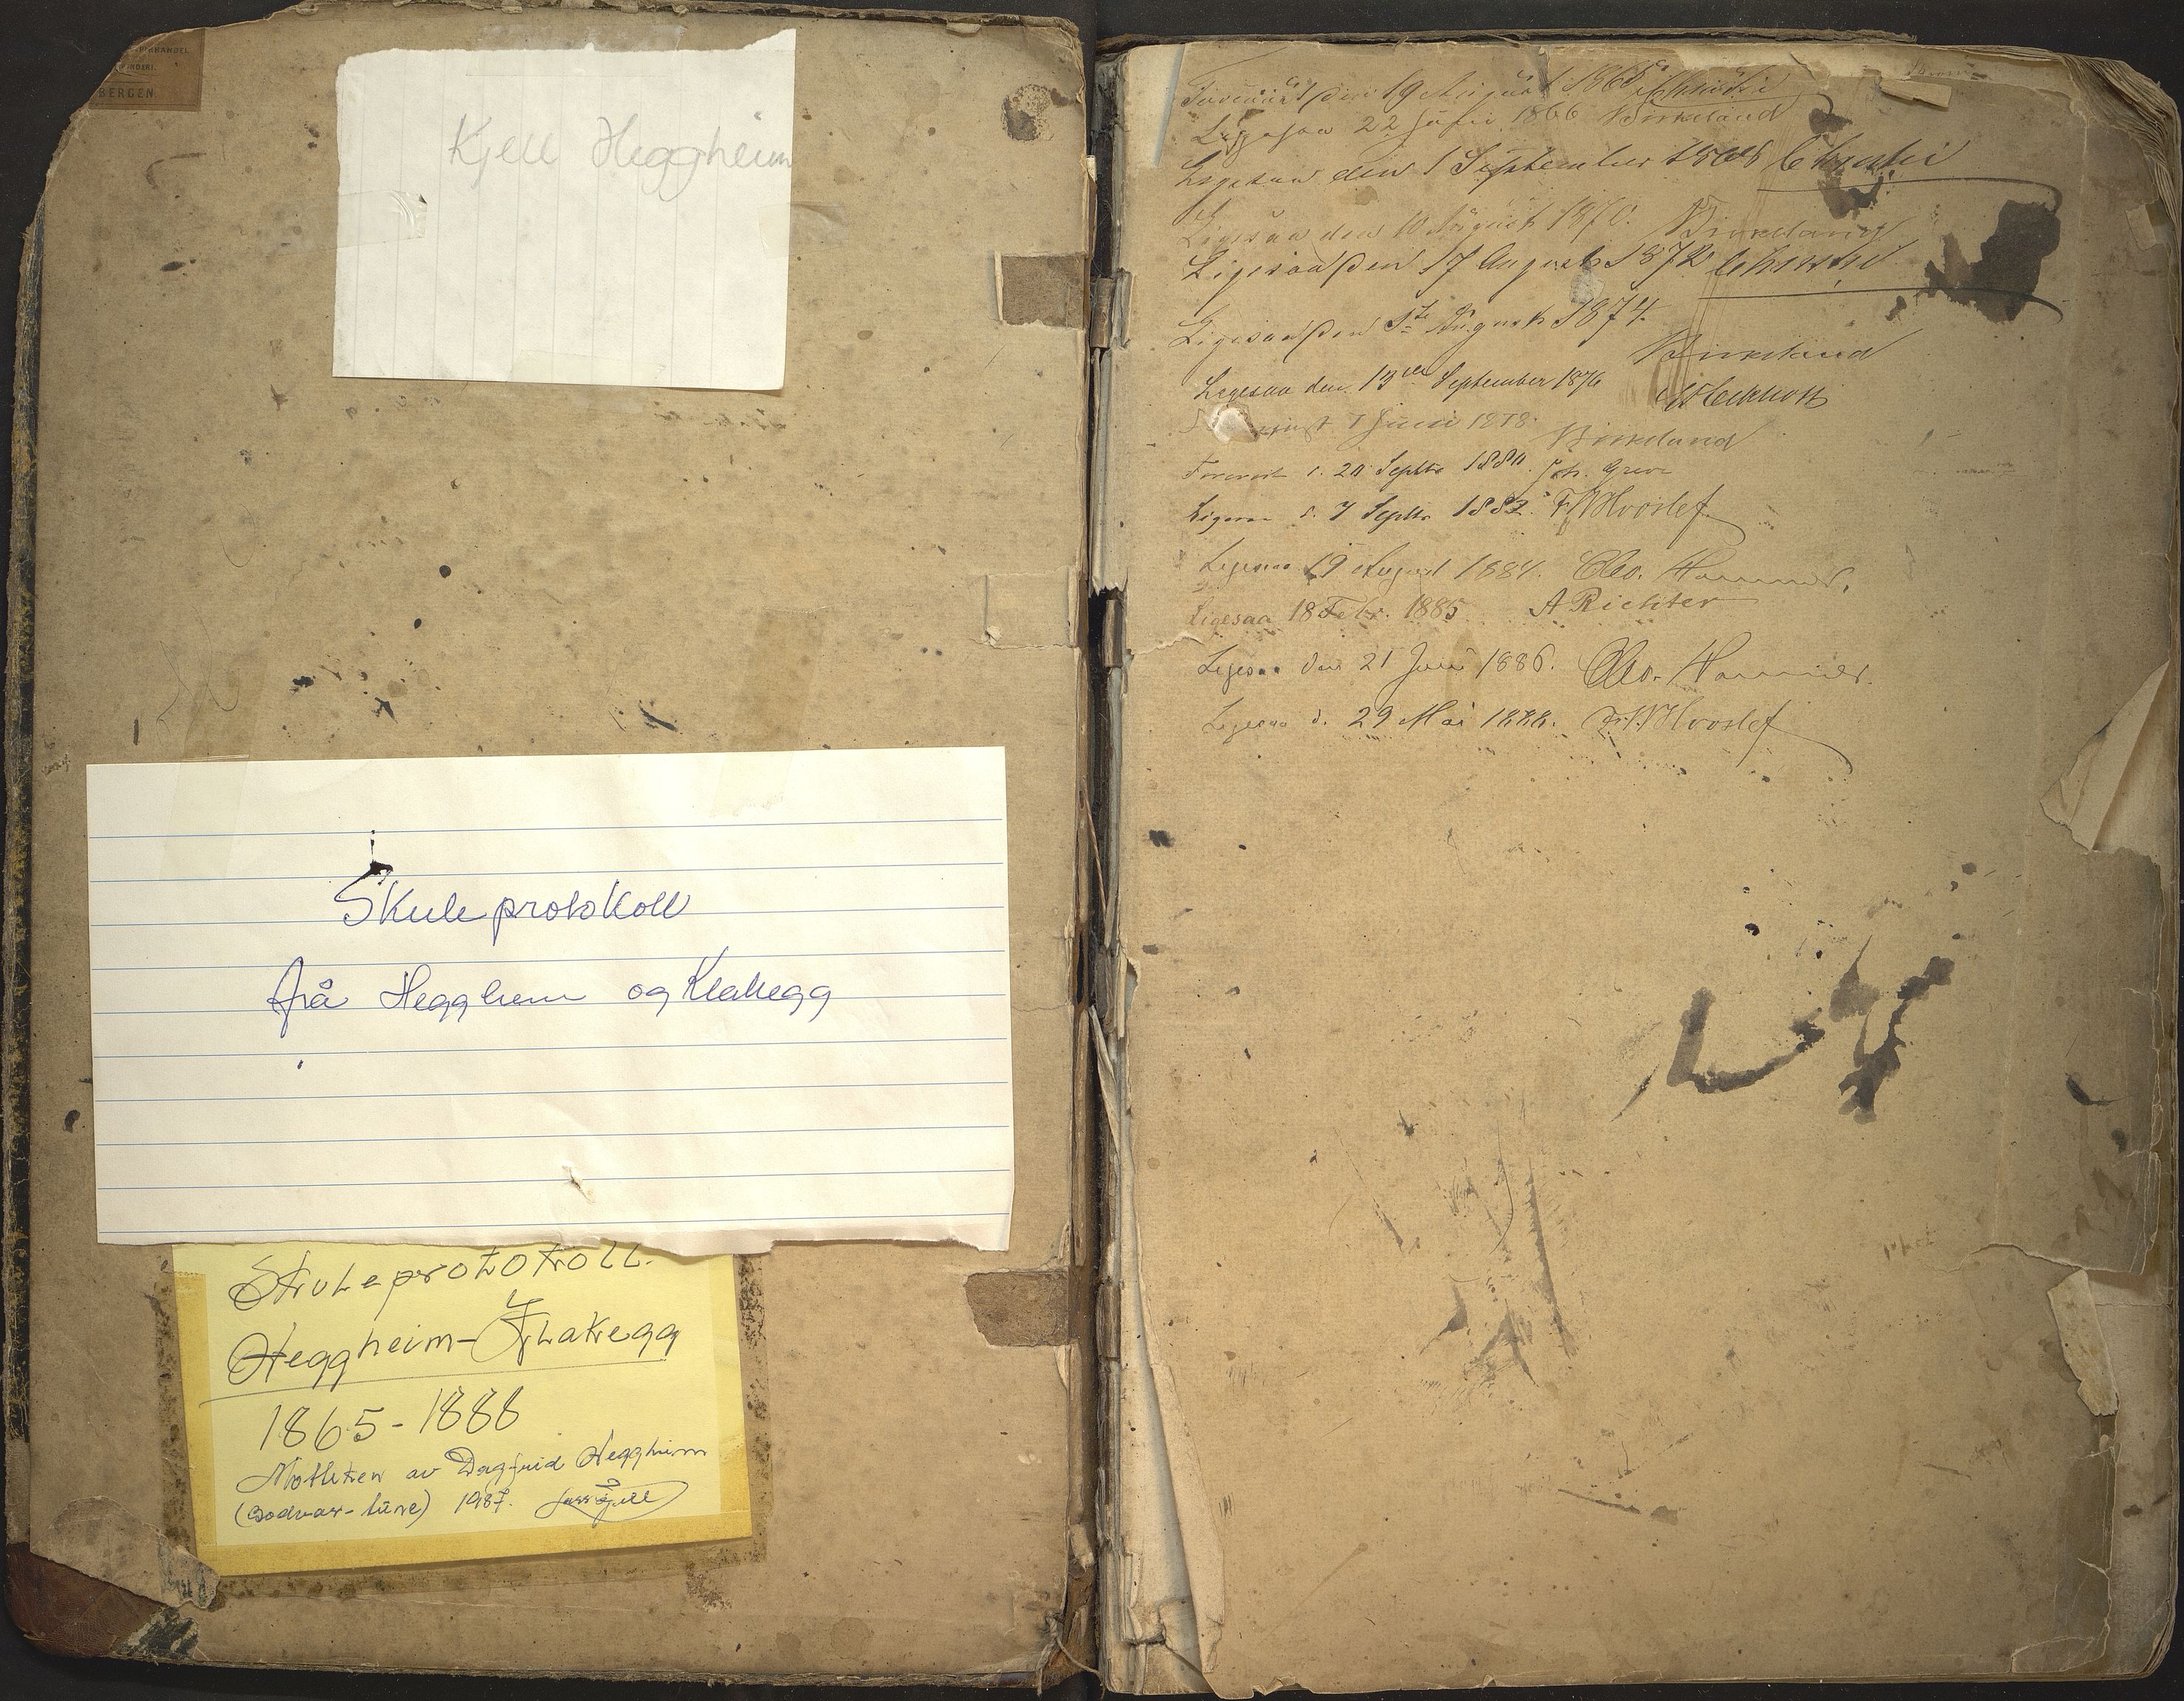 BERGEN
Kjell Heggheim
Skuleprotokoll
frå Heggheim og Klakegg
Skuleprotokoll.
Heggheim-Klakegg
1865-1888
Motteken av Dagfrid Heggheim
(Bodvar-tune) 1987.
Foreviist den 19 August 1865 Christie
Ligesaa 22 Juni 1866 Birkeland
Ligesaa den 1 September 1868 Christie
Ligesaa den 10 August 1870. Birkeland
Ligesaa den 17 August 1872 Christie
Ligesaa den 1ste August 1874.
Birkeland
Ligesaa den 13de September 1876
7 Juni 1878. Birkeland
Forevist d. 20 Septbr 1880. Joh. Greve
Ligesaa d. 7 Septbr 1882. F.W. Hvoslef
Ligesaa 19 August 1884. Chr. Hammer.
Ligesaa 18 Febr. 1885 A Richter
Ligesaa den 21 Juni 1886. Chr. Hammer.
Ligesaa d. 29 Mai 1888. F.W. Hvoslef